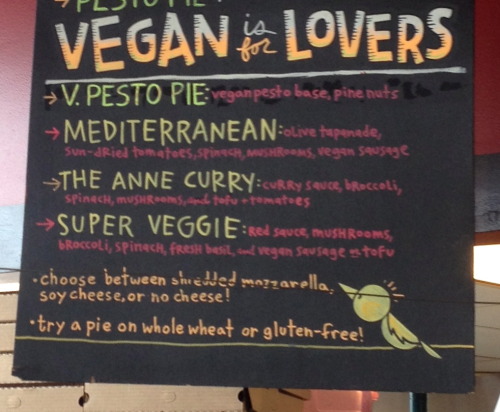 PESTO PIE
VEGAN is for LOVERS
V. PESTO PIE: vegan pesto base, pine nuts
MEDITERRANEAN: olive tapanade,
sun-dried tomatoes, spinach, mushrooms, vegan sausage
THE ANNE CURRY: curry sauce, broccoli,
spinach, mushrooms, and tofu + tomatoes
SUPER VEGGIE: red sauce, mushrooms,
broccoli, spinach, fresh basil, and vegan sausage or tofu
• choose between shredded mozzarella,
soy cheese, or no cheese!
• try a pie on whole wheat or gluten-free!